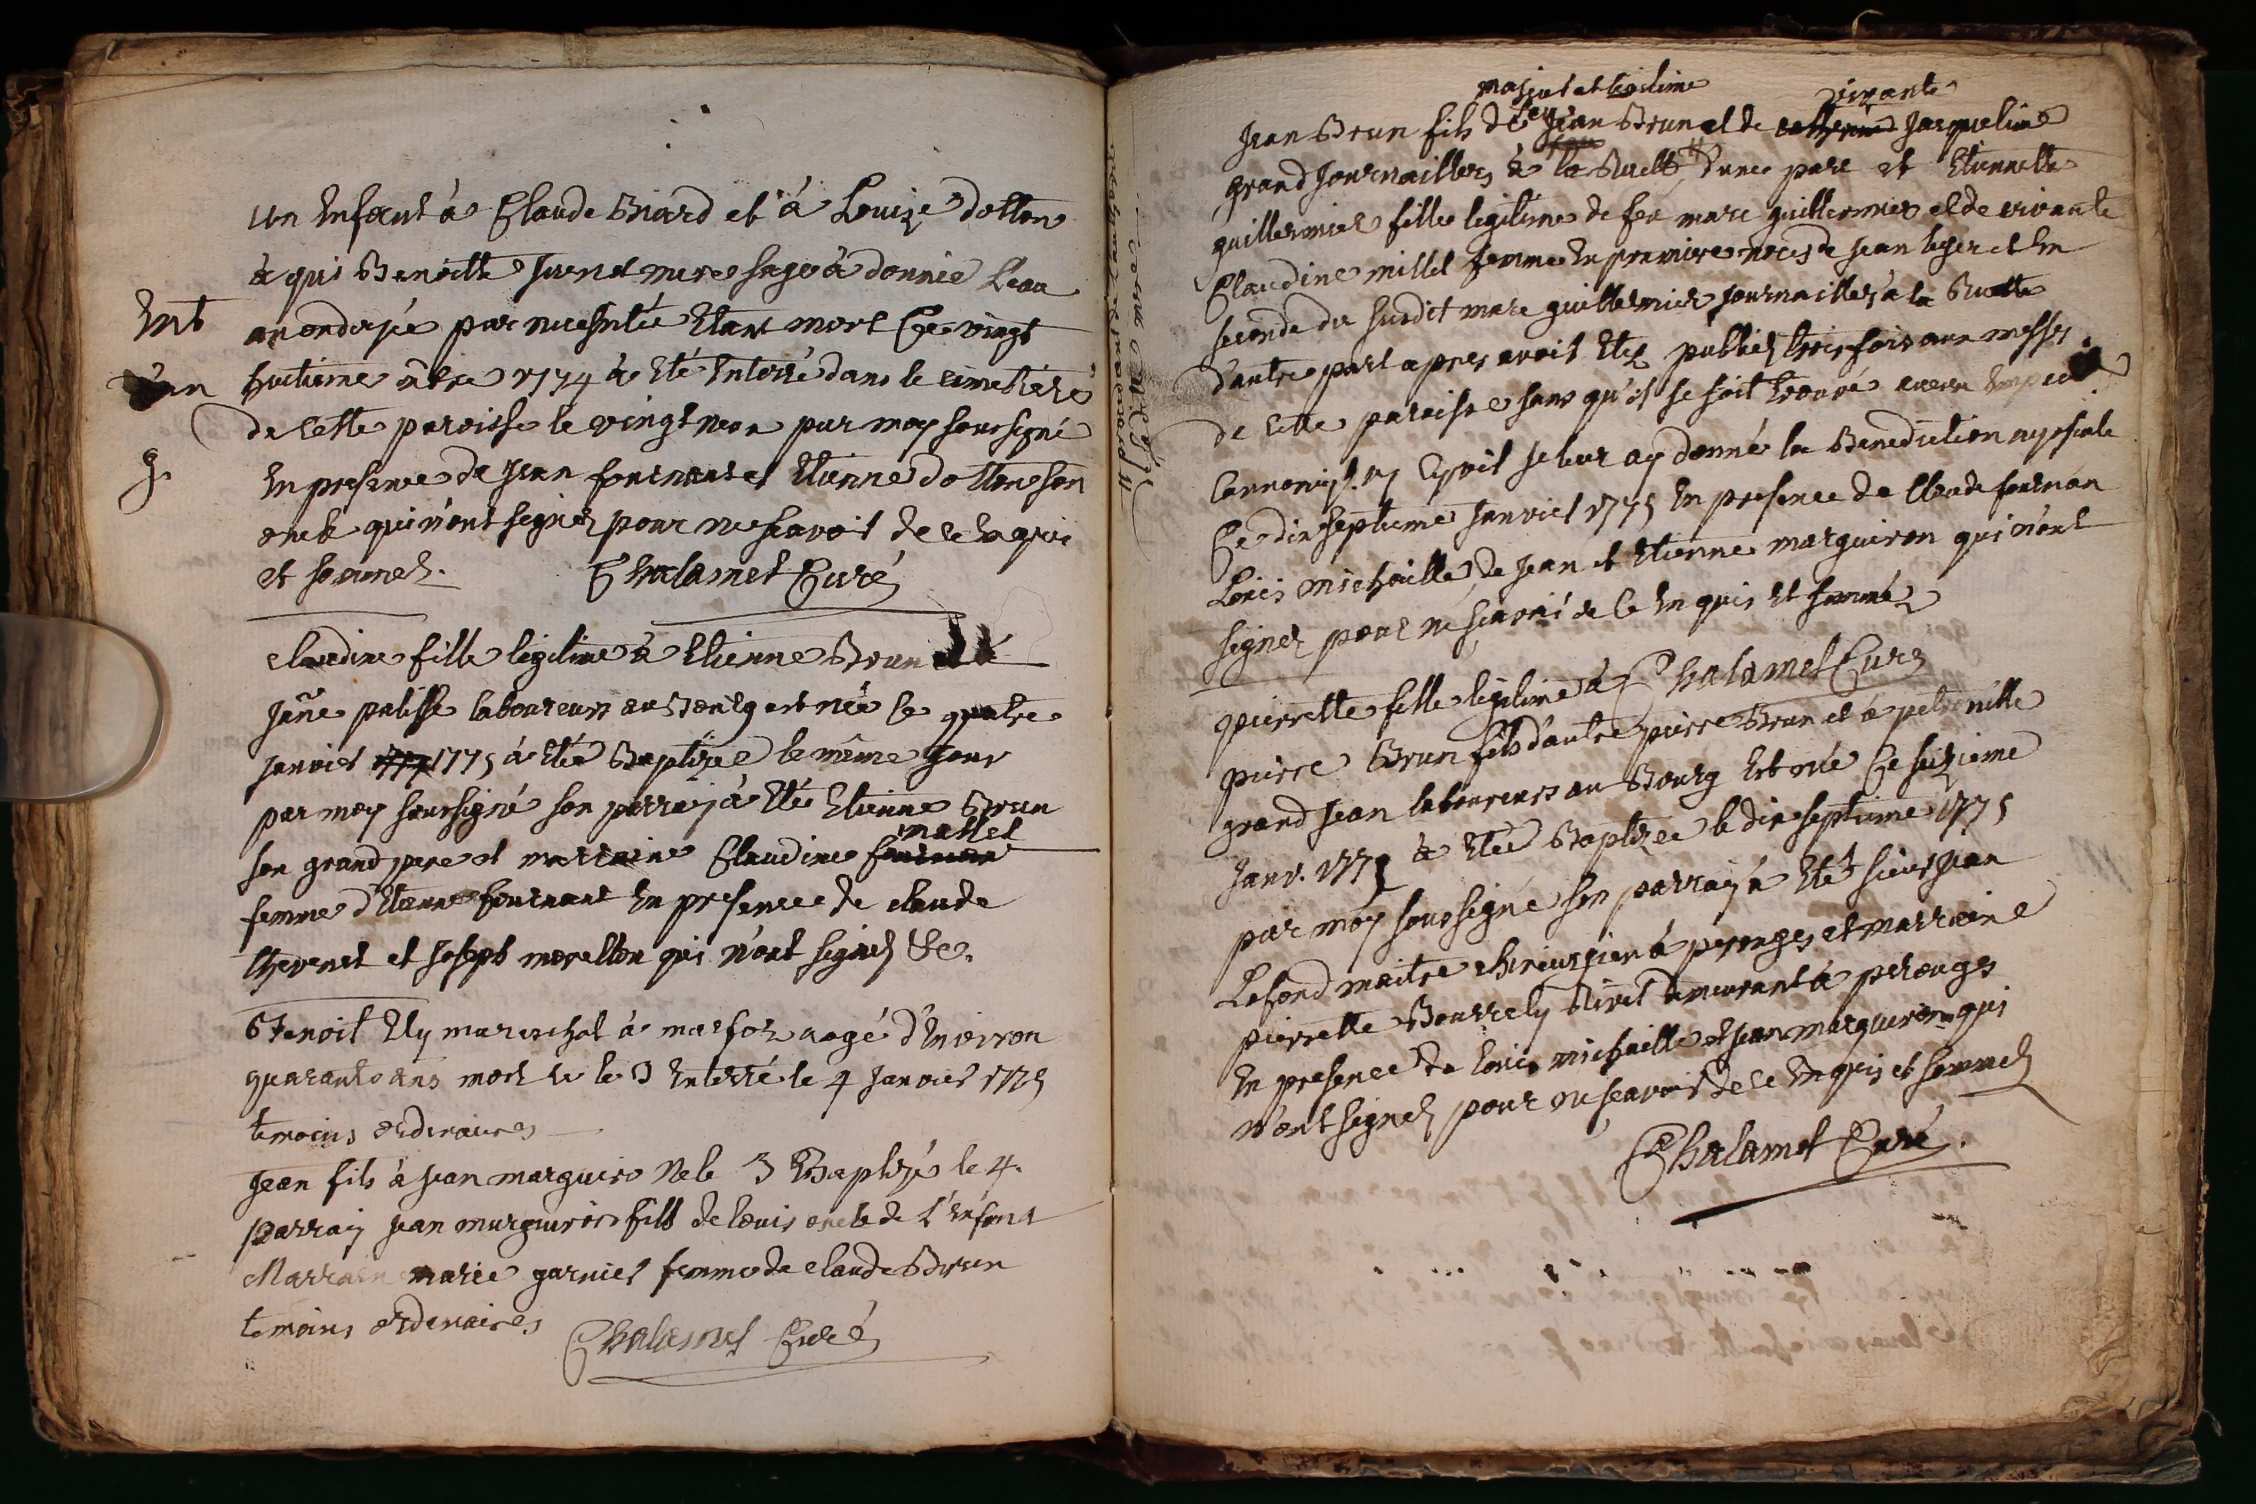 un Enfant à Claude Biard et à Louize dotton
à qui Benoitte Juenet mere sage à donnée Leau
Ent
an ondoyée par necessitée Etant mort Ce vingt
huitieme 1774 à Eté Enterré dans le cimetiere
de cette paroisse le vingt neu par moy soussigné
g.
En presence de Jean fournant et Etienne dotton son
oncle qui n'ont signez pour ne sçavoir de ce Enquis
et sommez. Chalamet Curé
claudine fille legitime à Etienne Brun et à
Jane palisse laboureurs au Bourg est née le quatre
Janvier 1775 à Eté Baptizée le même jour
par moy soussigné son parray à Eté Etienne Brun
mallet
son grand pere et marraine Claudine
femme d'Etienne fournant En presence de claude
thevenet et Joseph morelton qui n'ont signez &c.
Benoit Ely mareschal à marfoz aagé d'Environ
quarante ans mort le 3 Enterré le 4 Janvier 1775
temoins ordinaires
Jean fils à Jean marguiro Ne le 3 Baptizé le 4.
parray Jean marguiron fils de Louis oncle de L'Enfant
Marraine marie garnier femme de claude Brun
temoins ordinaires
Chalamet Curé
majeur et legitime vivante
Jean Brun fils de feu Jean Brun et de Jacqueline
grand Journailler à la Ruette d'une part et Etiennette
guillermier fille legitime de feu marc guillermier et de vivante
Claudine millet femme En premiere noces de Jean leger et En
seconde du susdit marc guillermier Journailler à la Ruette
d'autre part apres avoir Etez publiez trois fois aux messes
de cette paroisse sans qu'il se soit trouvé aucun Empech
Cannonique Ny Civil Je leur ay donné la Benediction nuptiale
Ce dix septieme Janvier 1775 En presence de Claude fournan
Louis michaille, de Jean et Etienne marguiron qui n'ont
signez pour ne sçavoir de ce Enquis et sommé
Chalamet Curé
pierrette fille legitime à
pierre Brun fils d'autre pierre Brun et à petronille
grand Jean laboureurs au Bourg Est née Ce seizieme
Janv. 1775 à Eté Baptizée le dix septieme 1775
par moy soussigné son parray à Eté sieur Jean
Lafond maitre chirurgien à perouges et marraine
pierrette Bourrely demeurant à perouges
En presence de Louis michaille et Jean marguiron qui
n'ont signez pour ne sçavoir de ce Enquis et sommez
Chalamet Curé.